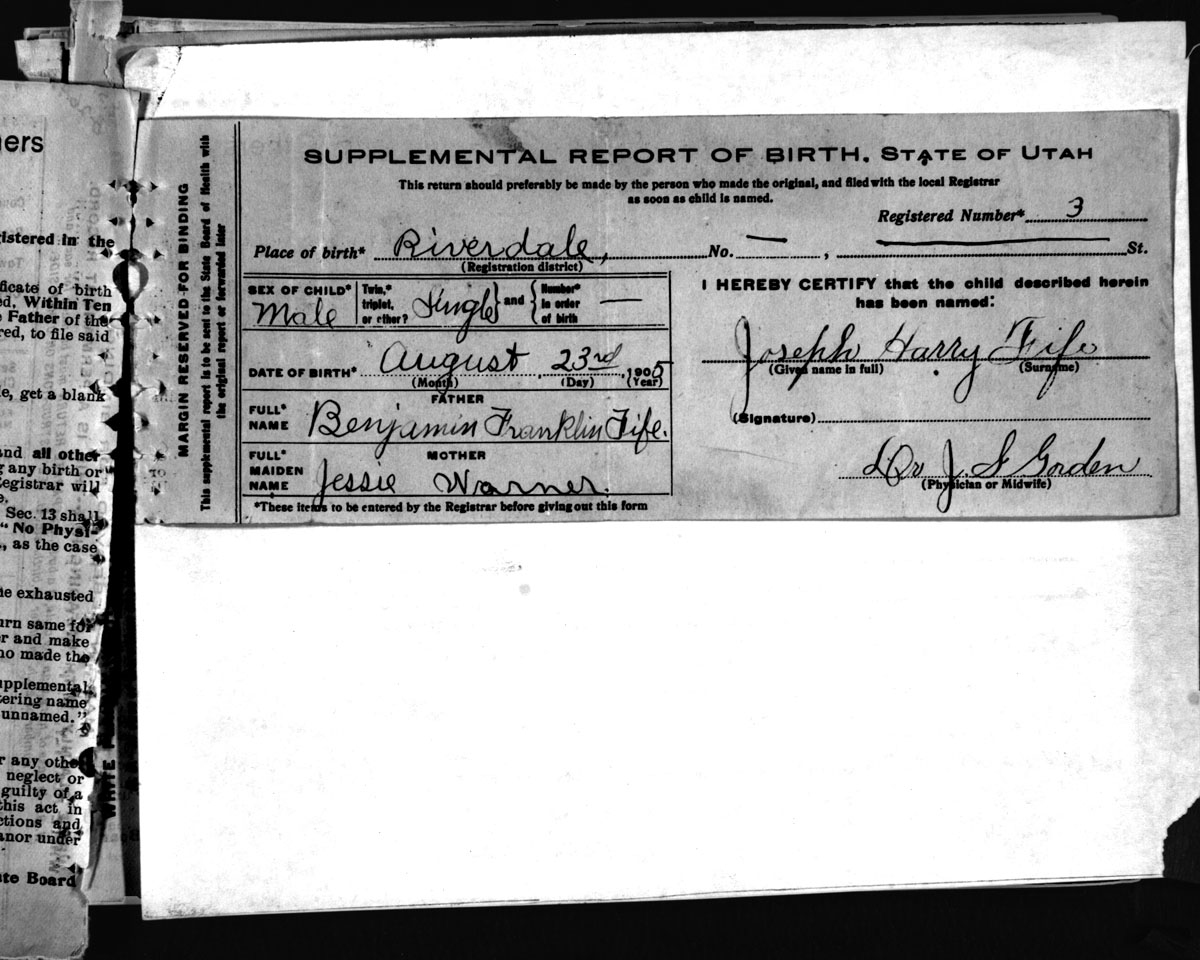 ners
gistered in the
ficate of birth
ed, Within Ten
e Father of the
red, to file said
le, get a blank
and all other
g any birth or
Registrar will
e.
Sec. 13 shall
"No Physi-
., as the case
be exhausted
urn same for
r and make
ho made the
upplemental
tering name
unnamed."
r any other
neglect or
guilty of a
this act in
ctions and
anor under
ate Board
MARGIN RESERVED FOR BINDING
This supplemental report is to be sent to the State Board of Health with
the original report or forwarded later
SUPPLEMENTAL REPORT OF BIRTH. STATE OF UTAH
This return should preferably be made by the person who made the original, and filed with the local Registrar
as soon as child is named.
Registered Number* 3
Place of birth* Riverdale, No. — , — St.
(Registration district)
SEX OF CHILD* Male
Twin,* triplet, or other? Single and Number* in order of birth —
DATE OF BIRTH* August 23rd, 1905
(Month) (Day) (Year)
FATHER
FULL* NAME Benjamin Franklin Fife.
MOTHER
FULL* MAIDEN NAME Jessie Warner.
*These items to be entered by the Registrar before giving out this form
I HEREBY CERTIFY that the child described herein
has been named:
Joseph Harry Fife
(Given name in full) (Surname)
(Signature)
Dr J. S Gorden
(Physician or Midwife)